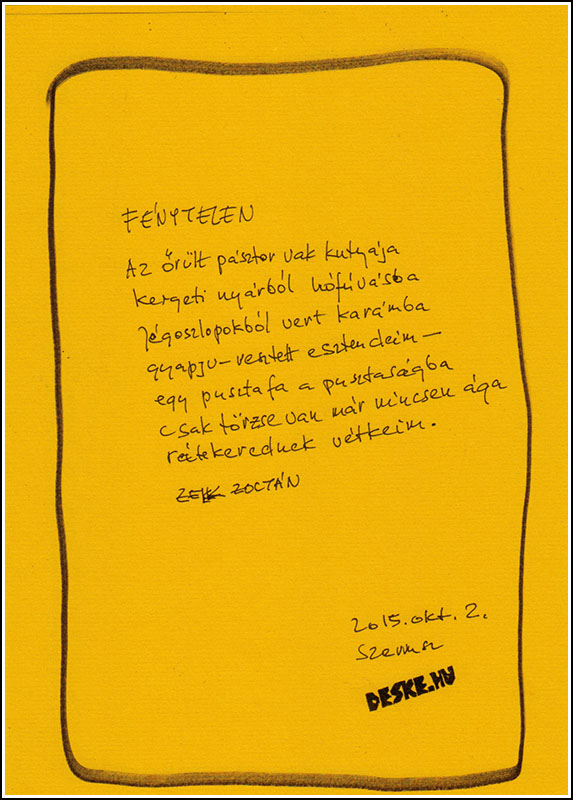 FÉNYTELEN
Az őrült pásztor vak kutyája
kergeti nyárból hófúvásba
jégoszlopokból vert karámba
gyapju-vesztett esztendeim—
egy pusztafa a pusztaságba
csak törzse van már nincsen ága
rátekerednek vétkeim.
ZELK ZOLTÁN
2015. okt. 2.
DESKE.HU